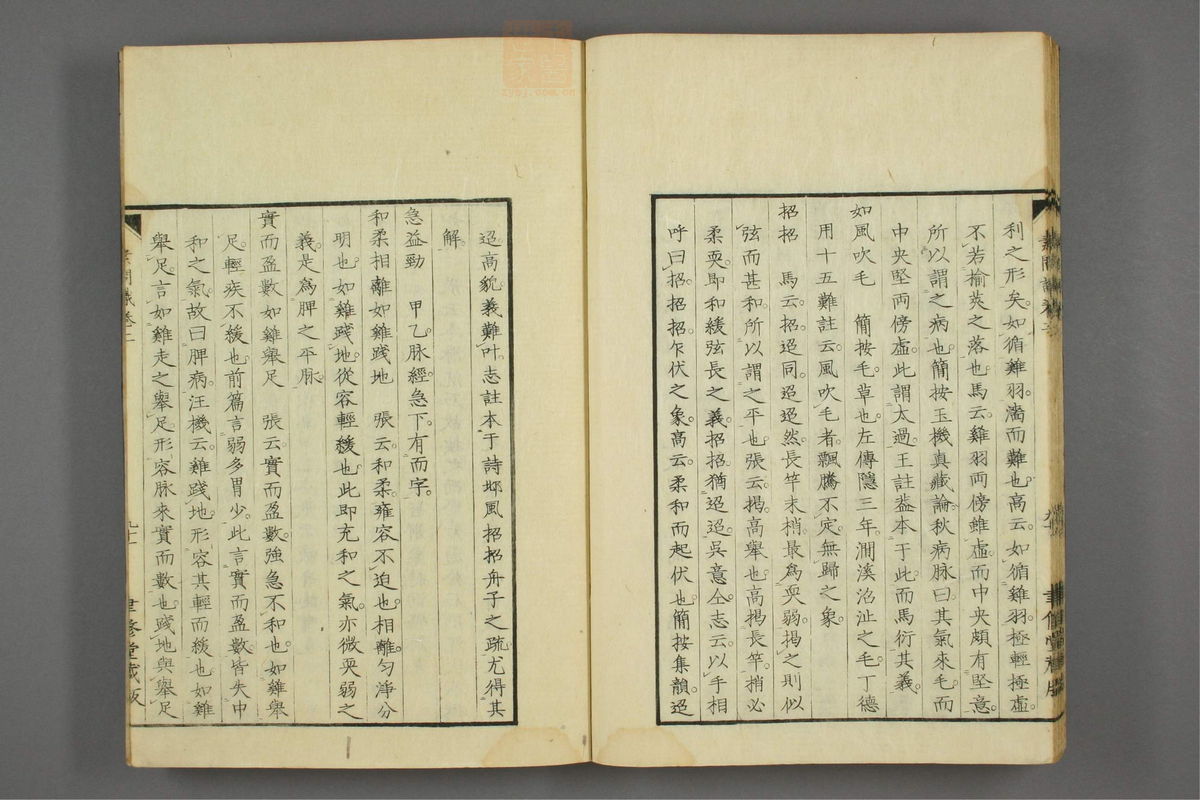 利之形矣。如循雞羽。濇而難也。高云。如循雞羽。極輕極虛。
不若榆莢之落也。馬云。雞羽兩傍雖虛。而中央頗有堅意。
所以謂之病也。簡按玉機真藏論。秋病脉曰。其氣來毛。而
中央堅。兩傍虛。此謂太過。王註蓋本于此。而馬衍其義。
如風吹毛　簡按毛。草也。左傳隱三年。澗溪沼沚之毛。丁德
用十五難註云。風吹毛者。飄騰不定。無歸之象。
招招　馬云。招迢同。迢迢然。長竿末梢。最為耎弱。揭之則似
弦而甚和。所以謂之平也。張云。揭。高舉也。高揭長竿。梢必
柔耎。即和緩弦長之義。招招。猶迢迢。吳意仝。志云。以手相
呼曰招。招招。乍伏之象。高云。柔和而起伏也。簡按集韻。迢
迢高貌。義難叶。志註本于詩邶風招招舟子之疏。尤得其
解。
急益勁　甲乙脉經。急下。有而字。
和柔相離如雞踐地　張云。和柔。雍容不迫也。相離。勻淨分
明也。如雞踐地。從容輕緩也。此即充和之氣。亦微耎弱之
義。是為脾之平脉。
實而盈數如雞舉足　張云。實而盈數。強急不和也。如雞舉
足。輕疾不緩也。前篇言弱多胃少。此言實而盈數。皆失中
和之氣。故曰脾病。汪機云。雞踐地。形容其輕而緩也。如雞
舉足。言如雞走之舉足。形容脉來實而數也。踐地與舉足
聿修堂藏版